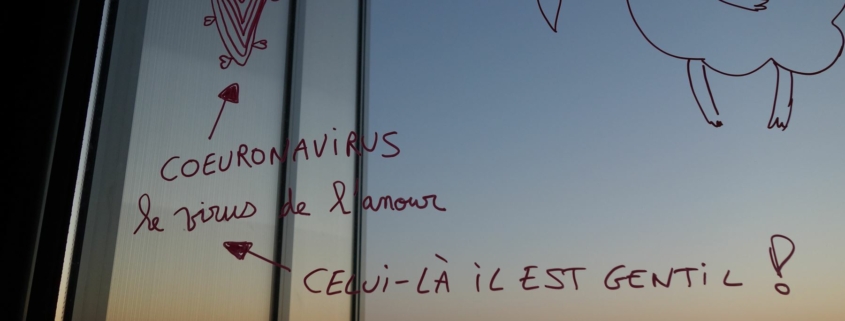 COEURONAVIRUS
le virus de l'amour
CELUI-LÀ IL EST GENTIL !